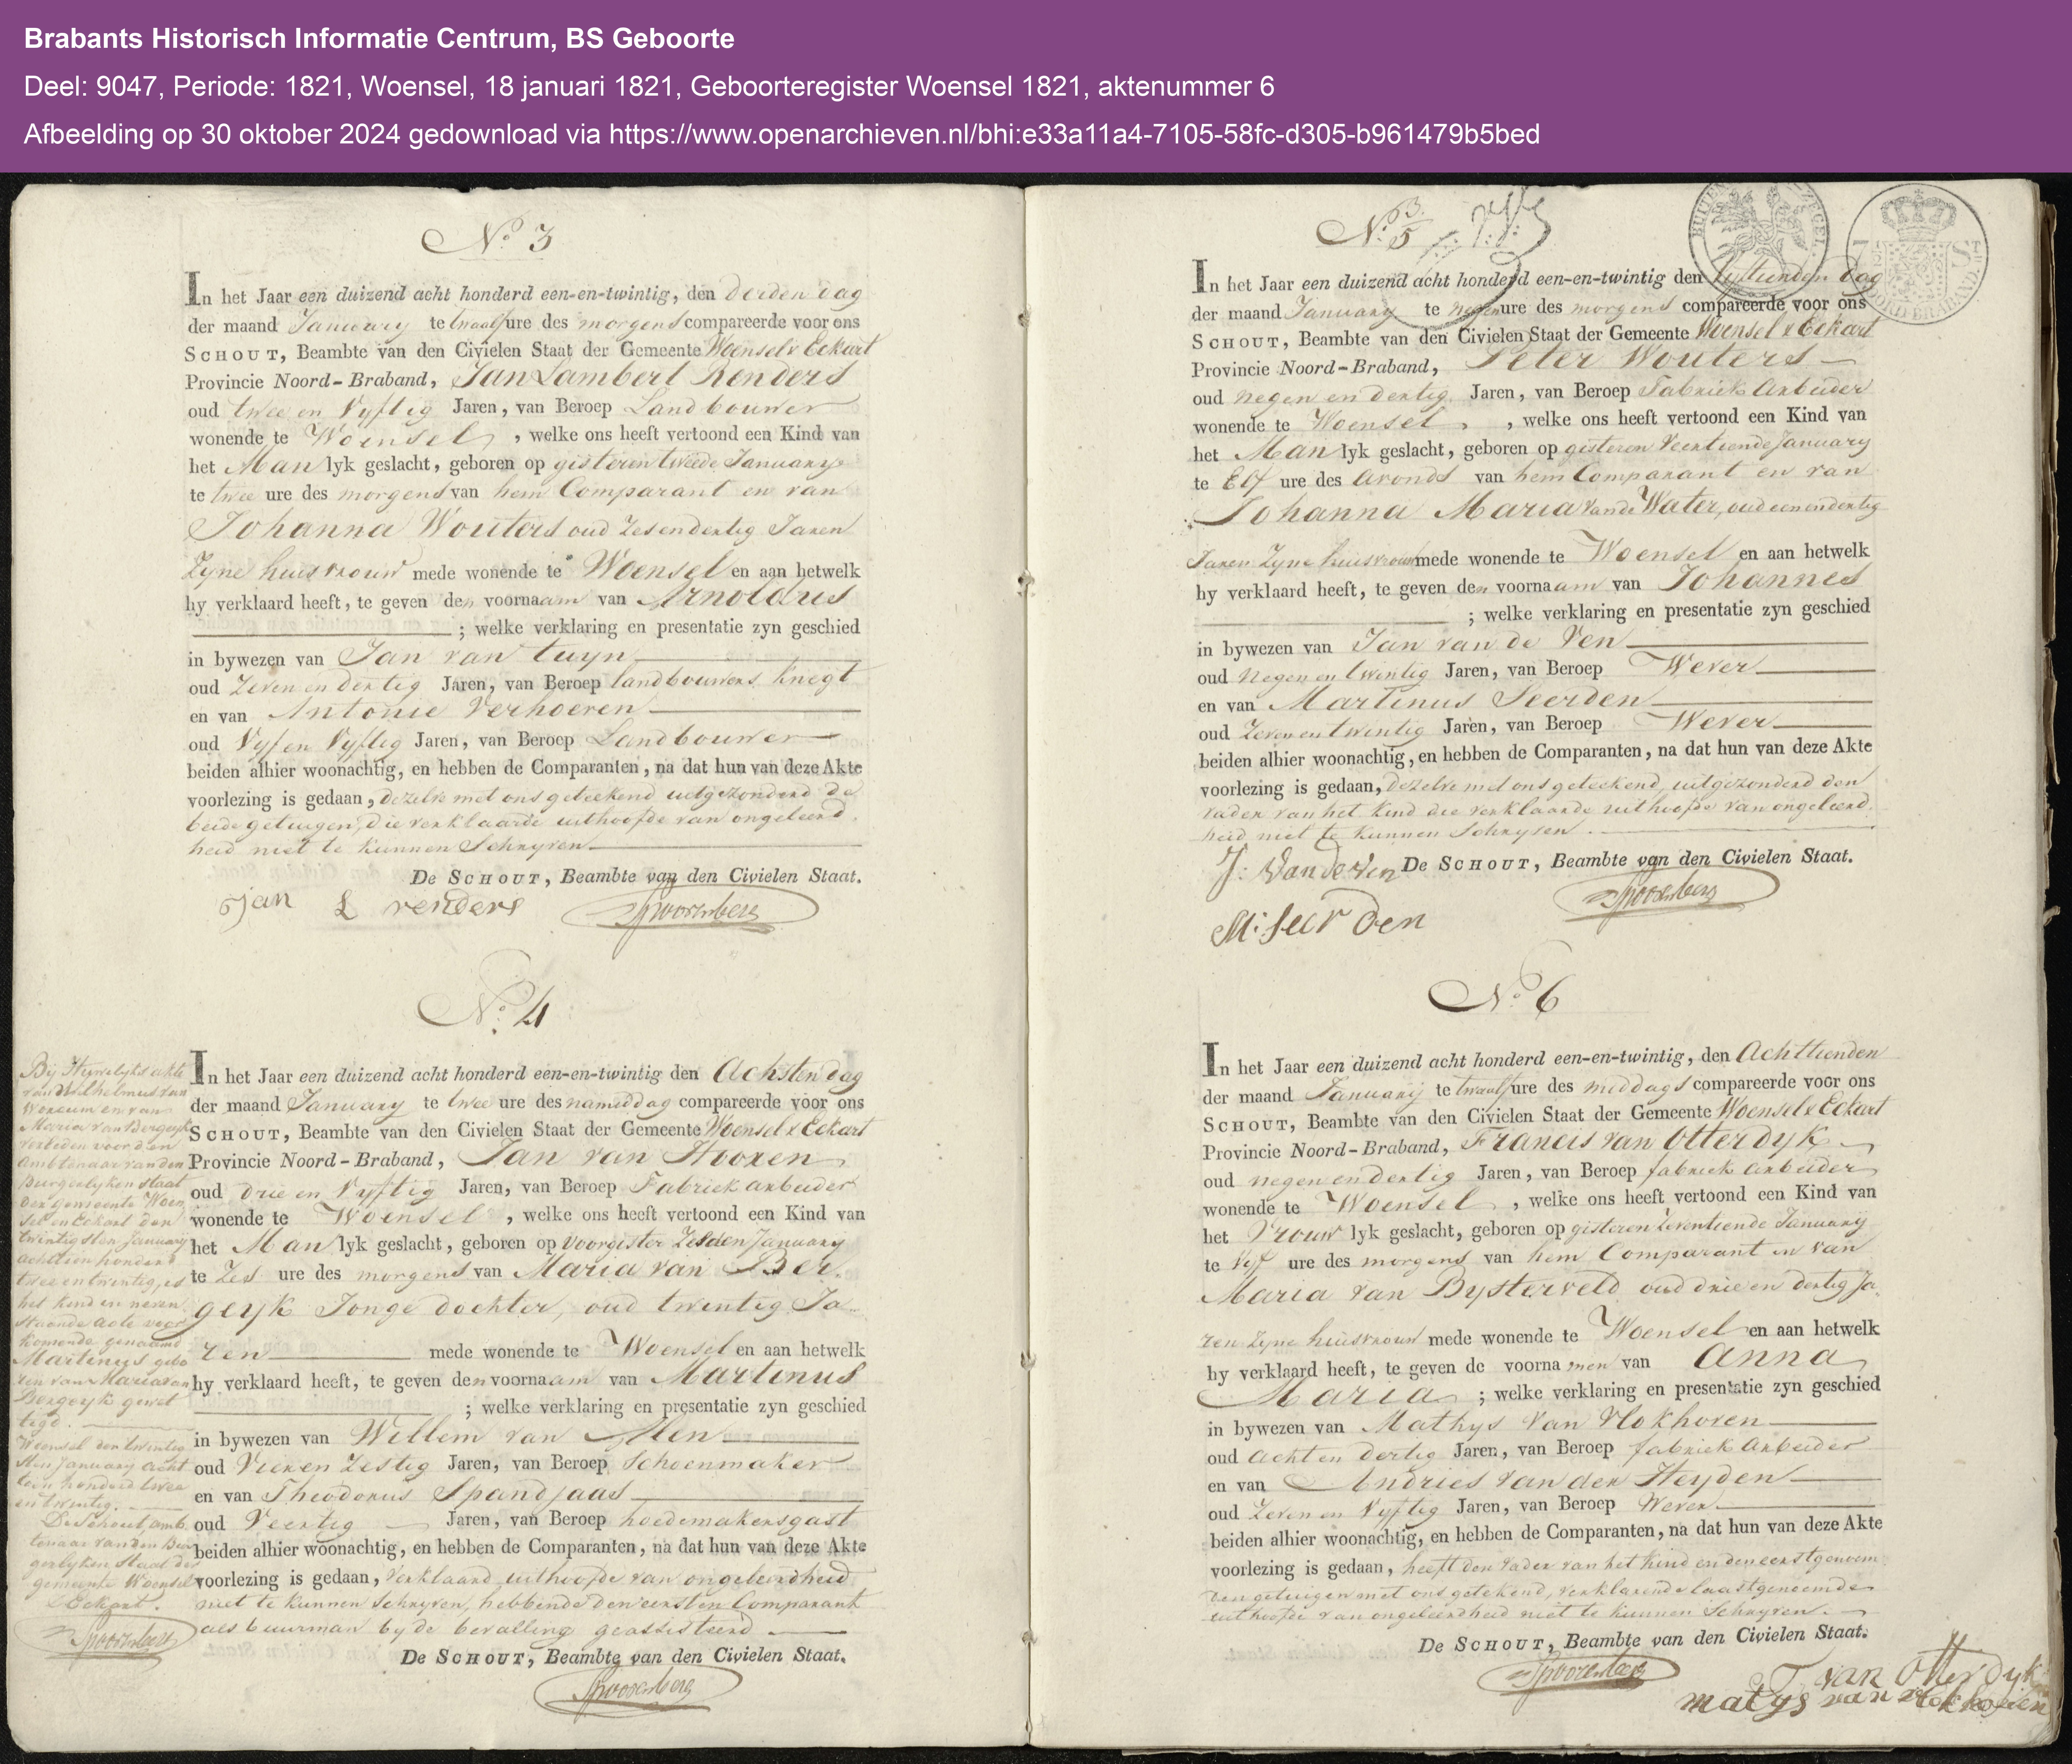 Brabants Historisch Informatie Centrum, BS Geboorte
Deel: 9047, Periode: 1821, Woensel, 18 januari 1821, Geboorteregister Woensel 1821, aktenummer 6
Afbeelding op 30 oktober 2024 gedownload via https://www.openarchieven.nl/bhi:e33a11a4-7105-58fc-d305-b961479b5bed
No. 3
In het Jaar een duizend acht honderd een-en-twintig, den derden dag
der maand January te twaalf ure des morgens compareerde voor ons
SCHOUT, Beambte van den Civielen Staat der Gemeente Woensel & Eckart
Provincie Noord-Braband, Jan Lambert Renders
oud twee en Vyftig Jaren, van Beroep Landbouwer
wonende te Woensel, welke ons heeft vertoond een Kind van
het Man lyk geslacht, geboren op gisteren tweede January
te twee ure des morgens van hem Comparant en van
Johanna Wouters oud Zes en dertig Jaren
Zyne huisvrouw mede wonende te Woensel en aan hetwelk
hy verklaard heeft, te geven den voornaam van Arnoldus
; welke verklaring en presentatie zyn geschied
in bywezen van Jan van Tuyn
oud Zeven en dertig Jaren, van Beroep landbouwers knegt
en van Antonie Verhoeven
oud Vyf en Vyftig Jaren, van Beroep Landbouwer
beiden alhier woonachtig, en hebben de Comparanten, na dat hun van deze Akte
voorlezing is gedaan, dezelve met ons geteekend uitgezonderd de
beide getuigen, die verklaarde uithoofde van ongeleerd
heid niet te kunnen Schryven
De SCHOUT, Beambte van den Civielen Staat.
Jan L renders Spoorenberg
No. 4
In het Jaar een duizend acht honderd een-en-twintig den Achsten dag
der maand January te twee ure des nameddag compareerde voor ons
SCHOUT, Beambte van den Civielen Staat der Gemeente Woensel & Eckart
Provincie Noord-Braband, Jan van Hooren
oud drie en Vyftig Jaren, van Beroep Fabriek arbeider
wonende te Woensel, welke ons heeft vertoond een Kind van
het Man lyk geslacht, geboren op Voorgister Zesden January
te Zes ure des morgens van Maria van Ber
geyk Jonge dochter, oud twentig Ja
ren mede wonende te Woensel en aan hetwelk
hy verklaard heeft, te geven den voornaam van Martinus
; welke verklaring en presentatie zyn geschied
in bywezen van Willem van Alen
oud Vier en Zestig Jaren, van Beroep Schoenmaker
en van Theodorus Spandjaas
oud Veertig Jaren, van Beroep hoedemakersgast
beiden alhier woonachtig, en hebben de Comparanten, na dat hun van deze Akte
voorlezing is gedaan, Verklaard uithoofde van ongeleerdheid
niet te kunnen Schryven, hebbende den eersten Comparant
als buurman by de bevalling geassisteerd
De SCHOUT, Beambte van den Civielen Staat.
Spoorenberg
By Huwelyks akte
van Wilhelmus van
en van
Maria van Bergeyk
verleden voor den
Ambtenaar van den
Burgerlyken Staat
der gemeente Woen
sel en Eckart den
twintigsten January
achttien honderd
twee en twintig, is
het kind in neven
staande acte voor
komende genaamd
Martinus gebo
ren van Maria van
Bergeyk gewet
tigd.
Woensel den twintig
sten January acht
tien honderd twee
en twintig.
De Schout, amb
tenaar van den Bur
gerlyken Staat der
gemeente Woensel
& Eckart.
Spoorenberg
No. 5
In het Jaar een duizend acht honderd een-en-twintig den Vyftienden dag
der maand January te negen ure des morgens compareerde voor ons
SCHOUT, Beambte van den Civielen Staat der Gemeente Woensel & Eckart
Provincie Noord-Braband, Peter Wouters
oud negen en dertig Jaren, van Beroep Fabriek Arbeider
wonende te Woensel, welke ons heeft vertoond een Kind van
het Man lyk geslacht, geboren op gisteren Veertiende January
te Elf ure des avonds van hem Comparant en van
Johanna Maria van de Water, oud een en dertig
Jaren Zyne huisvrouw mede wonende te Woensel en aan hetwelk
hy verklaard heeft, te geven den voornaam van Johannes
; welke verklaring en presentatie zyn geschied
in bywezen van Jan van de Ven
oud Negen en twintig Jaren, van Beroep Wever
en van Martinus Seerden
oud Zeven en twintig Jaren, van Beroep Wever
beiden alhier woonachtig, en hebben de Comparanten, na dat hun van deze Akte
voorlezing is gedaan, dezelve met ons geteekend, uitgezonderd den
vader van het kind die verklaarde uithoofde van ongeleerd
heid niet te kunnen Schryven.
De SCHOUT, Beambte van den Civielen Staat.
J: Van de Ven Spoorenberg
M: Seerden
No. 6
In het Jaar een duizend acht honderd een-en-twintig, den Achttienden
der maand January te twaalf ure des middags compareerde voor ons
SCHOUT, Beambte van den Civielen Staat der Gemeente Woensel & Eckart
Provincie Noord-Braband, Francis van Otterdyk
oud negen en dertig Jaren, van Beroep fabriek arbeider
wonende te Woensel, welke ons heeft vertoond een Kind van
het Vrouw lyk geslacht, geboren op gisteren Zeventiende January
te Vyf ure des morgens van hem Comparant en van
Maria van Bysterveld oud drie en dertig Ja
ren Zyne huisvrouw mede wonende te Woensel en aan hetwelk
hy verklaard heeft, te geven de voornamen van Anna
Maria ; welke verklaring en presentatie zyn geschied
in bywezen van Mathys van Vlokhoven
oud acht en dertig Jaren, van Beroep fabriek Arbeider
en van Andries van der Heyden
oud Zeven en Vyftig Jaren, van Beroep Wever
beiden alhier woonachtig, en hebben de Comparanten, na dat hun van deze Akte
voorlezing is gedaan, heeft den vader van het kind en den eerstgenoem
den getuigen met ons getekend, verklarende laastgenoemde
uithoofde van ongeleerdheid niet te kunnen Schryven.
De SCHOUT, Beambte van den Civielen Staat.
Spoorenberg F van Otterdyk
matys van vlokhoven